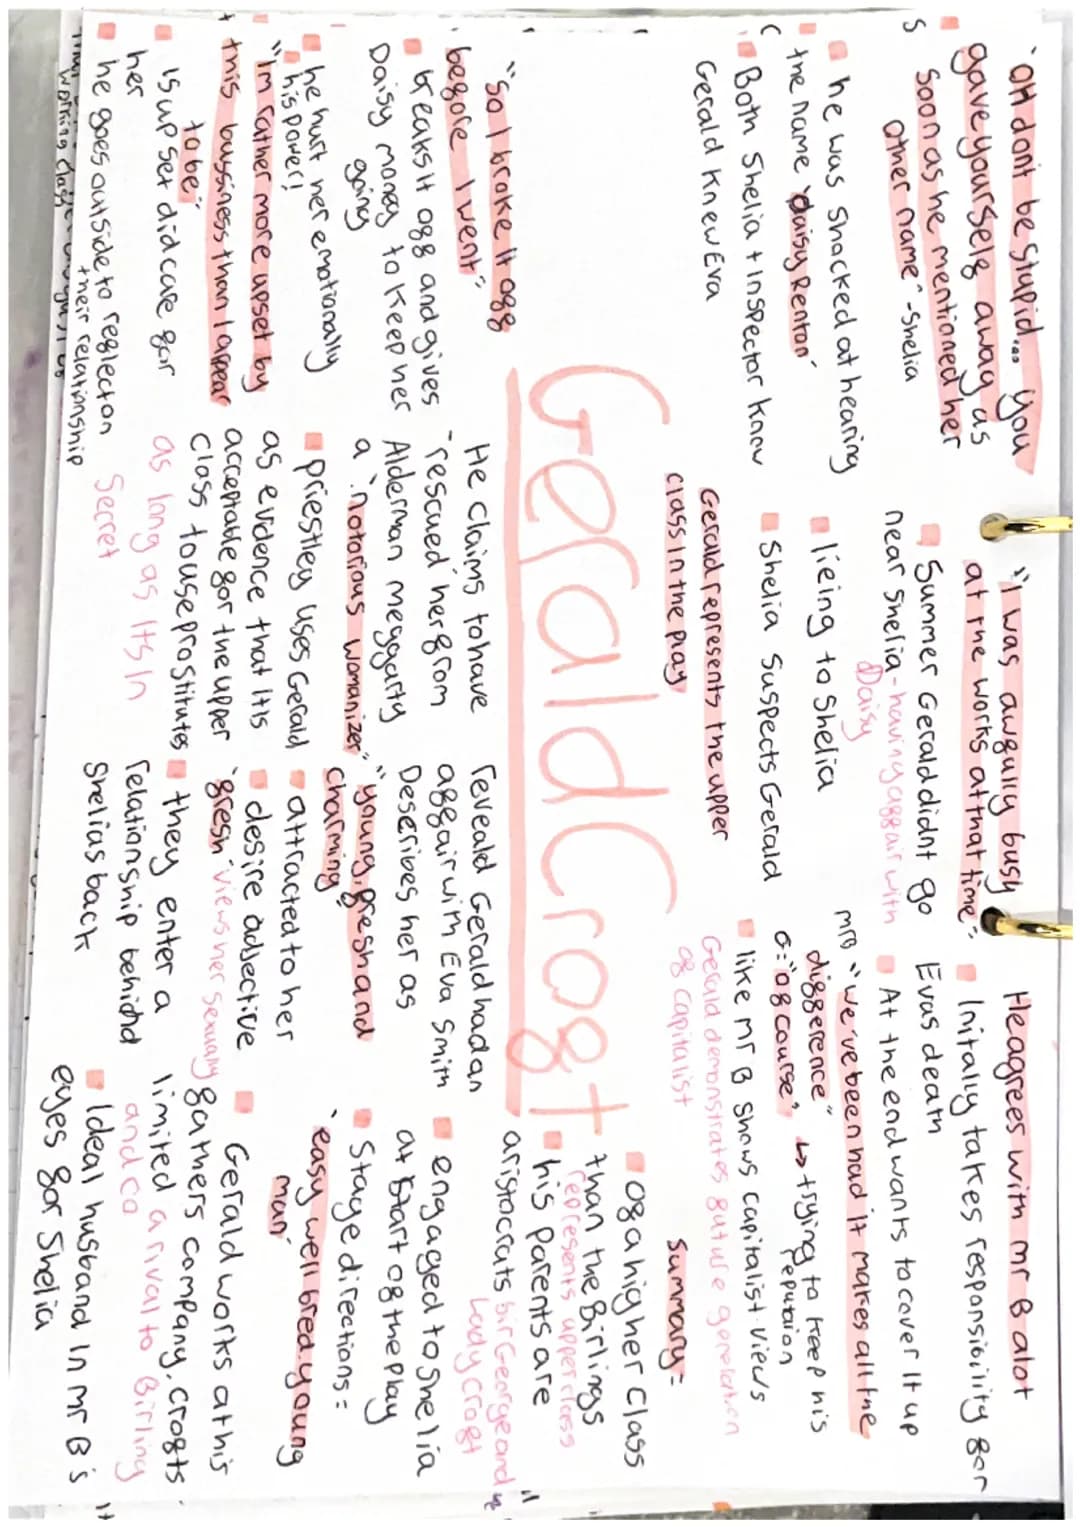 "OH dont be stupid... you
gave yourself away as
soon as he mentioned her
other name" -Shelia
he was shocked at hearing
the name 'daisy Renton'
Both Shelia + inspector know
Gerald knew Eva
"I was awfully busy
at the works at that time"
Summer Gerald didnt go
near Shelia - having affair with
Daisy
lieing to Shelia
Shelia suspects Gerald
He agrees with mr B alot
Initaly takes responsibility for
Evas death
At the end wants to cover it up
"We've been had it makes all the
difference"
G: "of course" ↳ trying to keep his
reputaion
like mr B shows capitalist views
Gerald demonstrates future generation
of capitalist
Gerald represents the upper
class in the play
Gerald Croft
"so I broke it off
before I went"
breaks it off and gives
Daisy money to keep her
going
he hurt her emotionally
his power!
"Im rather more upset by
this bussiness than I appear
to be"
is upset did care for
her
he goes outside to reflect on
their relationship
He claims to have
'rescued' her from
Alderman meggarty
a 'notorious womanizer'
priestley uses Gerald
as evidence that it is
acceptable for the upper
class to use prostitutes
as long as its in
secret
reveald Gerald had an
affair with Eva Smith
Describes her as
"young, fresh and
charming"
attracted to her
desire adjective
'fresh' views her sexually
they enter a
relationship behichd
Shelias back
Summary -
of a higher class
than the Birlings
represents upper class
his parents are
aristocrats sir George and
Lady Croft
engaged to Shelia
at start of the play
Stage directions =
'easy well bred young
man'
Gerald works at his
fathers company, crofts
limited a rival to Birling
and co
Ideal husband in mr B's
eyes for Shelia